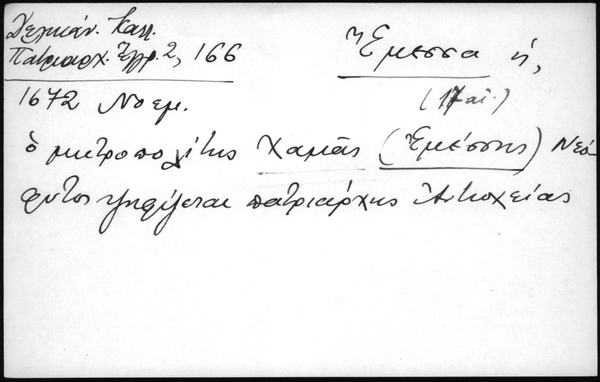 Δελικάν. Καλ.
Πατριαρχ. Ἔγγρ. 2, 166
Ἔμεσσα ἡ,
(17 αἰ.)
1672 Νοεμ.
ὁ μητροπολίτης Χαμᾶς (Ἐμέσσης) Νεό-
φυτος ψηφίζεται πατριάρχης Ἀντιοχείας